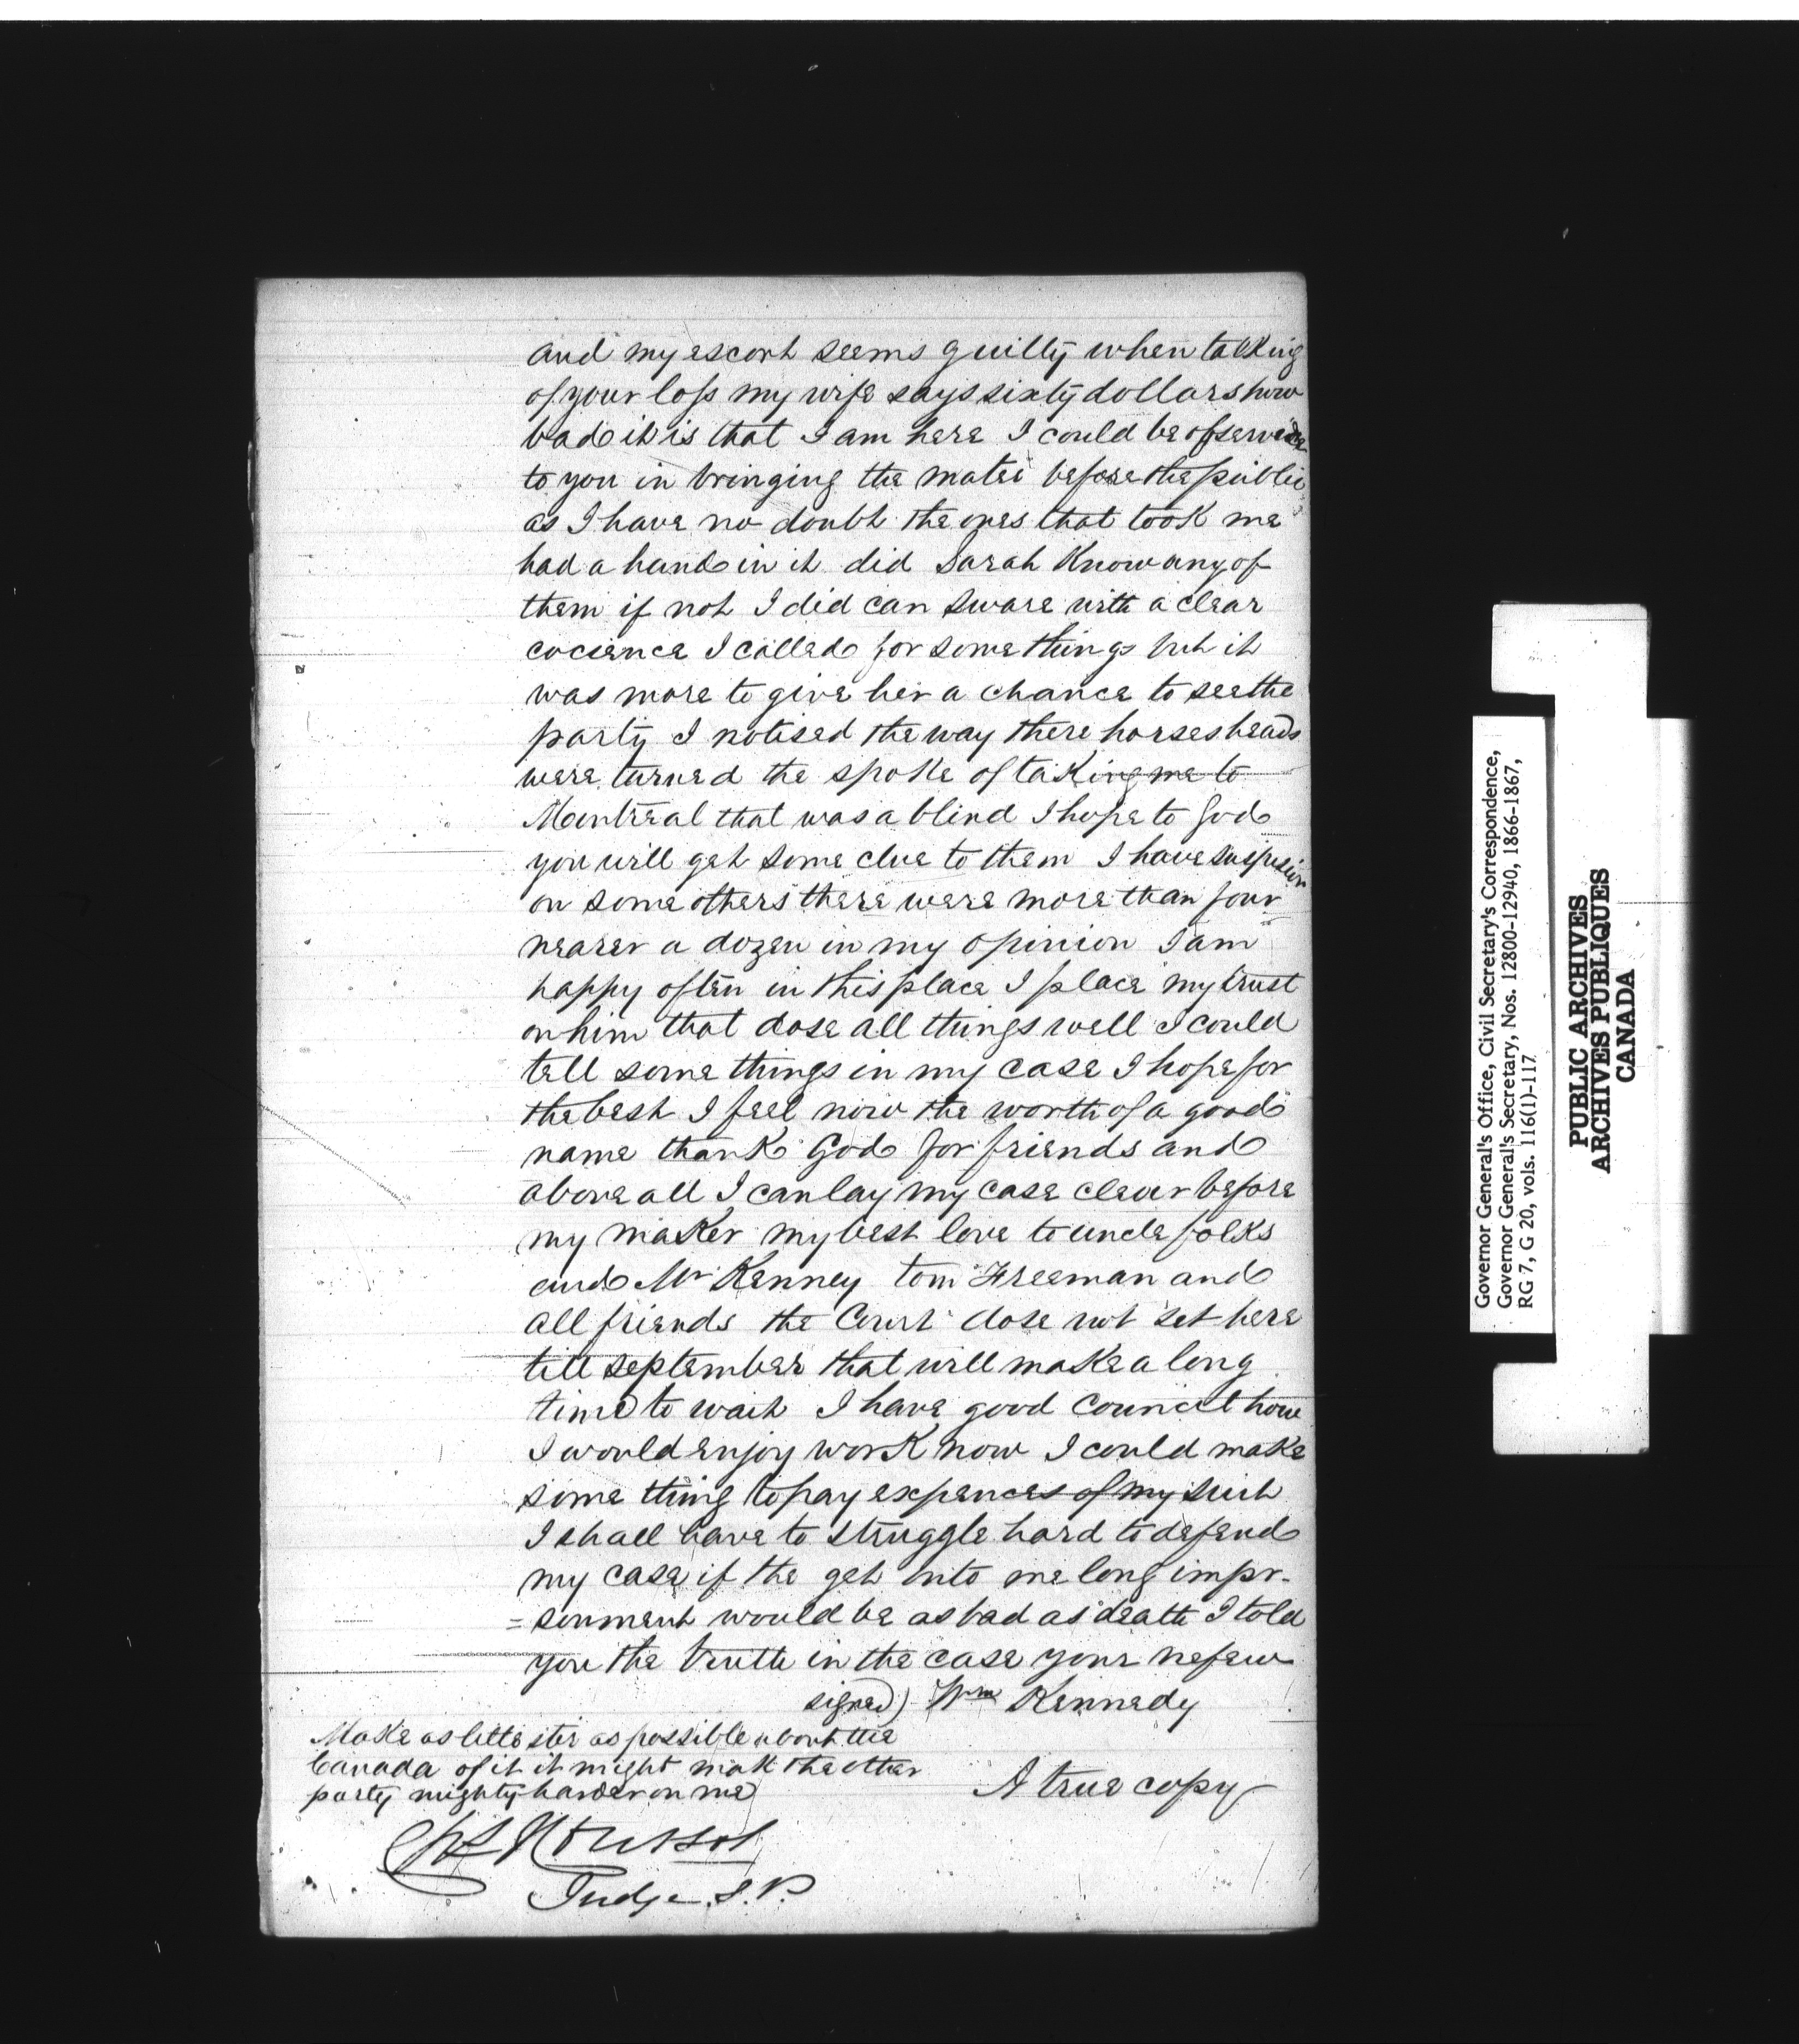 and my escort seems guilty when talking
of your loss my wife says sixty dollars how
bad it is that I am here I could be of service
to you in bringing the mater before the public
as I have no doubt the ones that took me
had a hand in it did Sarah Know any of
them if not I did can sware with a clear
cocience I called for some things but it
was more to give her a chance to see the
party I notised the way there horses heads
were turned the spoke of taking me to
Montreal that was a blind I hope to God
you will get some clue to them I have suspision
on some others there were more than four
nearer a dozen in my opinion I am
happy often in this place I place my trust
on him that dose all things well I could
tell some things in my case I hope for
the best I feel now the worth of a good
name thank God for friends and
above all I can lay my case clear before
my maker my best love to uncle folks
and Mr Kenney tom Freeman and
all friends the Court dose not set here
till september that will make a long
time to wait I have good council how
I would enjoy work now I could make
some thing to pay expences of my suit
I shall have to struggle hard to defend
my case if the get into me long impr-
=sonment would be as bad as death I told
you the truth in the case your nefew
signed) Wm Kennedy
Make as little stir as possible about the
Canada of it it might mak the other
party mighty harder on me
A true copy
Judge S.P.
Governor General's Office, Civil Secretary's Correspondence,
Governor General's Secretary, Nos. 12800-12940, 1866-1867,
RG 7, G 20, vols. 116(1)-117
PUBLIC ARCHIVES
ARCHIVES PUBLIQUES
CANADA